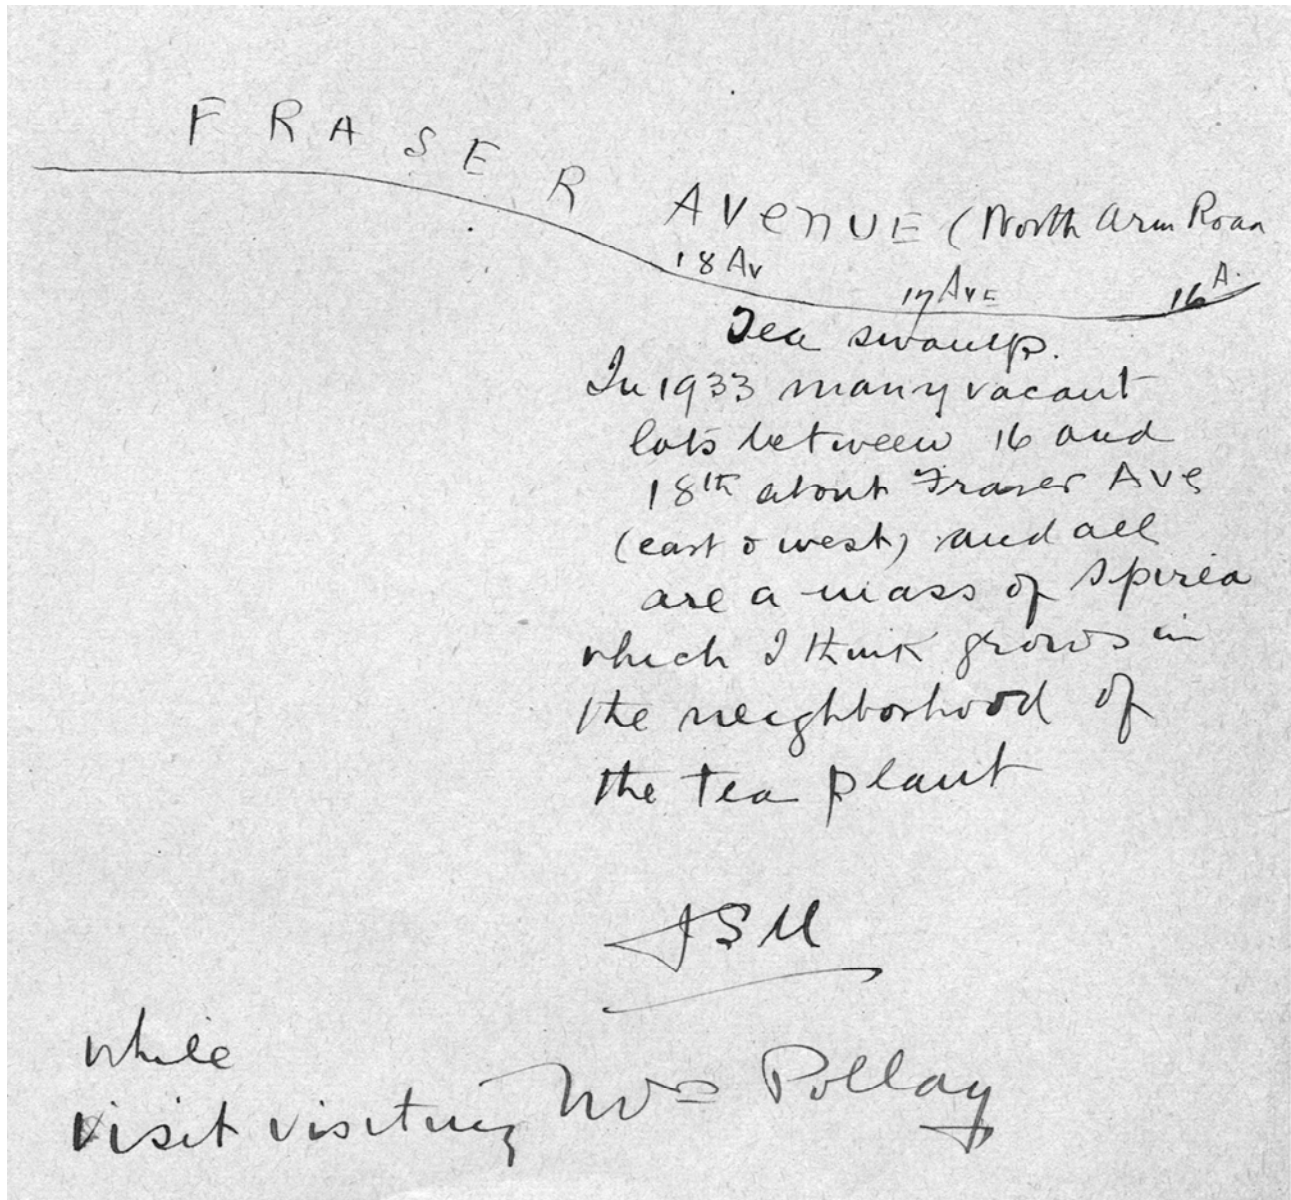 FRASER AVENUE (North Arm Road
18 Av 17 AVE 16 A.
Tea swamp.
In 1933 many vacant
lots between 16 and
18th about Fraser Ave
(east & west) and all
are a mass of Spirea
which I think grows in
the neighborhood of
the tea plant
JSM
while
visit visiting Mrs Pollay